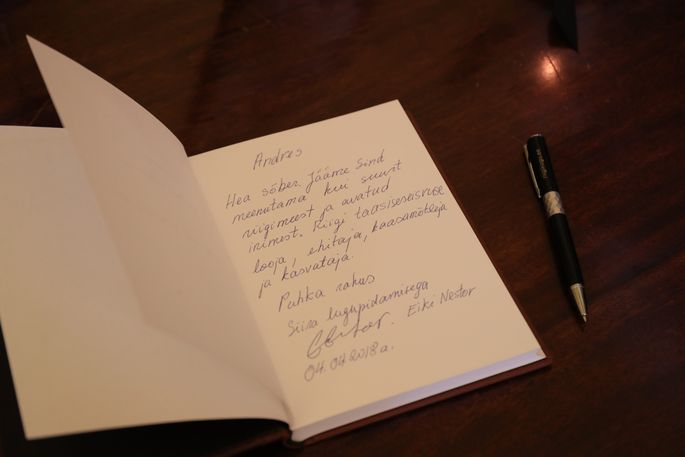 Andres
Hea sõber. Jääme Sind
meenutama kui suurt
riigimeest ja avatud
inimest. Riigi taasiseseisvuse
looja, ehitaja, kaasamõtleja
ja kasvataja.
Puhka rahus
Siira lugupidamisega
Eiki Nestor
04.04.2018 a.